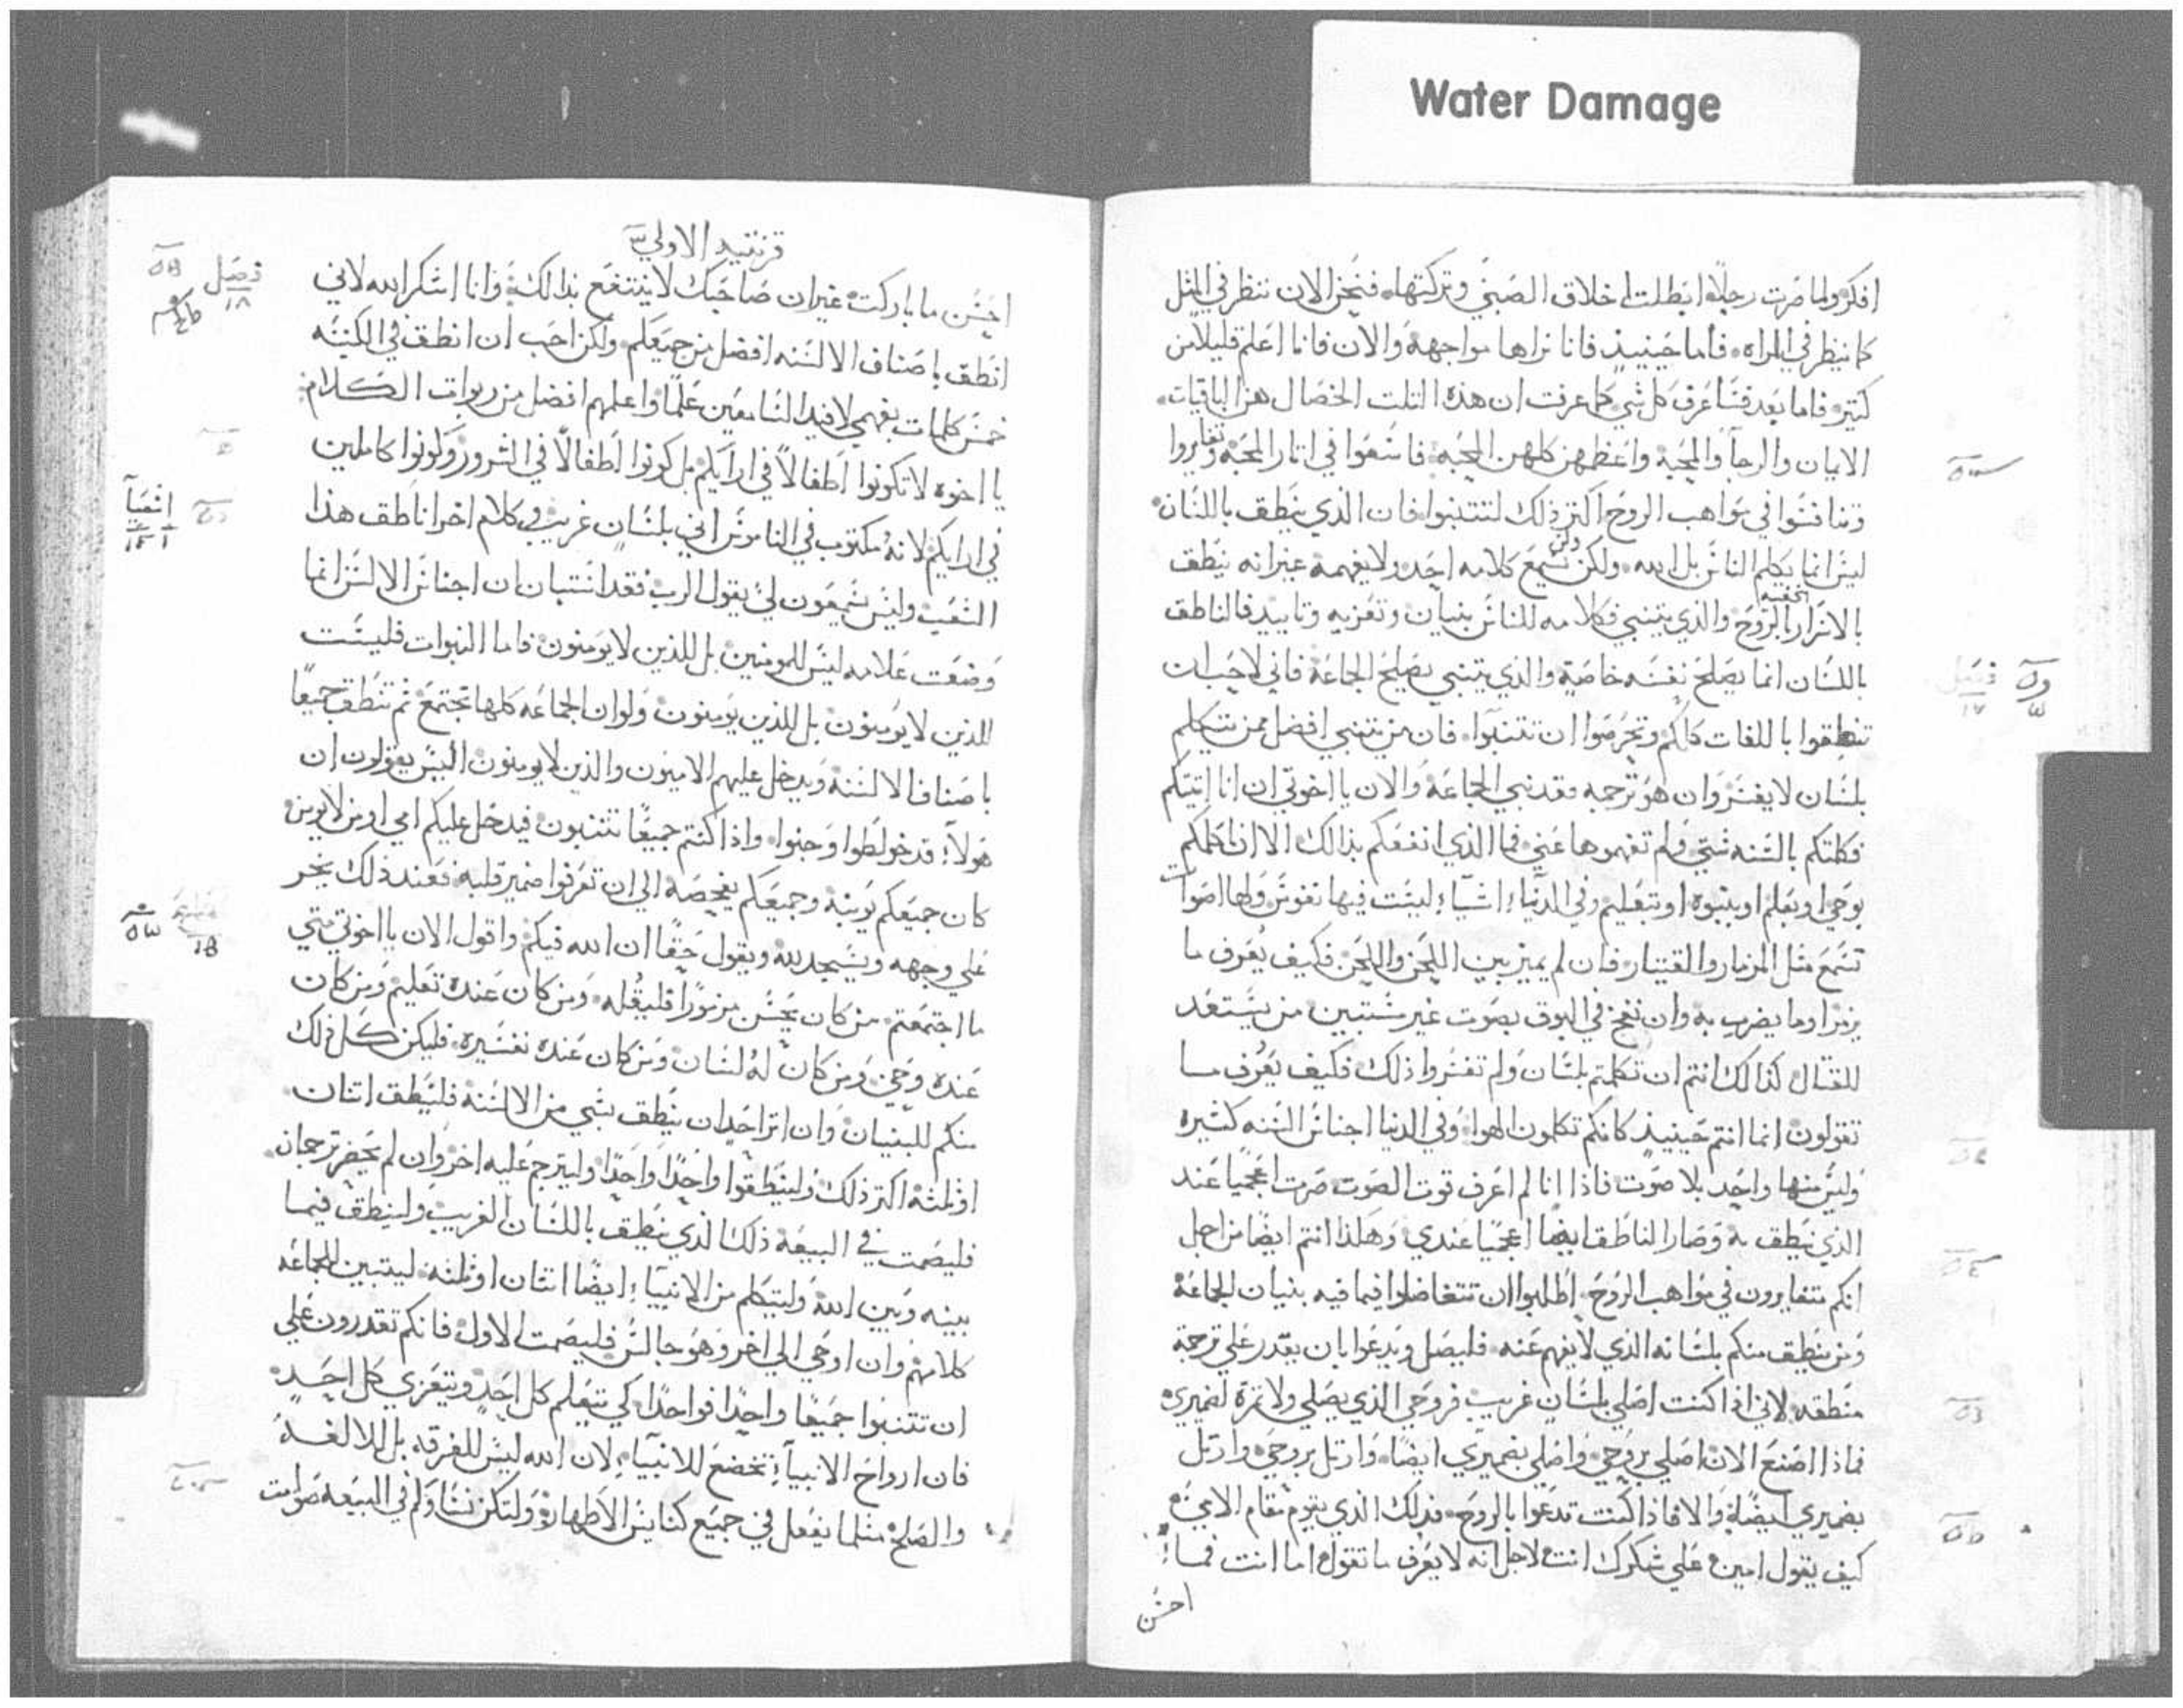 Water Damage
افكر ولما صرت رجلاً ابطلت اخلاق الصبي وتركتها. فنحن الان ننظر في المثل
كما ينظر في المراه. فاما حينيذ فانا نراها مواجهة والان فانا اعلم قليلاً من
كتير. فاما بعد فساعرف كل شي كما عرفت ان هذه التلت الخصال هن الباقيات.
الايمان والرجآ والمحبة واعظمهن كلهن المحبة. فاسعوا في اتار المحبة وتغايروا
وتنافسوا في مواهب الروح اكتر ذلك لتتنبوا فان الذي ينطق باللسان
ليس انما يكلم الناس بل الله. ولكن وليس يسمع كلامه احد ولا يفهمه غير انه ينطق
بالاسرار بالروح والذي يتنبي فكلامه للناس بنيان وتعزيه وتاييد فالناطق
باللسان انما يصلح نفسه خاصة والذي يتنبي يصلح الجماعة فاني لاحب ان
تنطقوا باللغات كلكم وتحرصوا ان تتنبوا. فان من يتنبي افضل ممن يتكلم
بلسان لا يفسر وان هو ترجمه فقد نبي الجماعة والان يا اخوتي ان انا اتيتكم
فكلمتكم بالسنه شتي ولم تفهموها عني فما الذي انفعكم بذالك الا ان اكلمكم
بوحي او بعلم او بنبوه او بتعليم وفي الدنيا اشيآء ليست فيها نفوس ولها اصوات
تسمع مثل المزمار والقيتار فان لم يميز بين اللحن واللحن فكيف يعرف ما
يزمر او ما يضرب به وان نفخ في البوق بصوت غير مستبين من يستعد
للقتال كذالك انتم ان تكلمتم بلسان ولم تفسروا ذلك فكيف يعرف ما
تقولون انما انتم حينيذ كانكم تكلمون الهوا وفي الدنيا اجناس السنه كثيره
وليس منها واحد بلا صوت فاذا انا لم اعرف قوت الصوت صرت اعجميا عند
الذي ينطق به وصار الناطق ايضا اعجميا عندي وهكذا انتم ايضا من اجل
انكم متغايرون في مواهب الروح. اطلبوا ان تتفاضلوا فيما فيه بنيان الجماعة
ومن ينطق منكم بلسانه الذي لا يفهم عنه. فليصل ويدعوا بان يقدر علي ترجمة
منطقه لاني اذا كنت اصلي بلسان غريب فروحي الذي يصلي ولا تمرة لضميري
فماذا اصنع الان اصلي بروحي واصلي بضميري ايضا. وارتل بروحي وارتل
بضميري ايضا والا فاذا كنت تدعوا بالروح. فذلك الذي يقوم مقام الامي
كيف يقول امين علي شكرك انت لاجل انه لا يعرف ما تقول اما انت فما
احسن
فصل
١٧
قرنتيه الاولي
احسن ما باركت غير ان صاحبك لا ينتفع بذالك وانا اشكر الله لاني
انطق باصناف الالسنه افضل من جميعكم ولكن احب ان انطق في الكنيسه
خمس كلمات بفهمي لافيد السامعين علما واعلمهم افضل من ربوات الكلام
يا اخوه لا تكونوا اطفالاً في ارايكم بل كونوا اطفالاً في الشرور وكونوا كاملين
في ارايكم لانه مكتوب في الناموس اني بلسان غريب وفي كلام اخر اناطق هذا
الشعب وليس يسمعون لي يقول الرب فقد استبان ان اجناس الالسن انما
وضعت علامه ليس للمومنين بل للذين لا يومنون فاما النبوات فليست
للذين لا يومنون بل للذين يومنون ولو ان الجماعه كلها تجتمع ثم تنطق جميعاً
باصناف الالسنه ويدخل عليهم الاميون والذين لا يومنون اليس يقولون ان
هولآء قد خولطوا وجنوا. واذا كنتم جميعاً تتنبون فيدخل عليكم امي او من لا يومن
كان جميعكم يوبنه وجميعكم يفحصه الي ان تعرفوا ضمير قلبه فعند ذلك يخر
علي وجهه ويسجد لله ويقول حقاً ان الله فيكم واقول الان يا اخوتي متي
ما اجتمعتم. من كان يحسن مزموراً فليقله. ومن كان عنده تعليم ومن كان
عنده وحي ومن كان له لسان ومن كان عنده تفسيره. فليكن كل ذلك
منكم للبنيان وان اتر احد ان ينطق بشي من الالسنة فلينطق اتنان.
او ثلثة اكتر ذلك ولينطقوا واحدا واحدا وليترجم عليه اخر وان لم يحضر ترجمان
فليصمت في البيعة ذلك الذي ينطق باللسان الغريب ولينطق فيما
بينه وبين الله وليتكلم من الانبيآء ايضا اتنان او ثلثة. ليتبين للجماعه
كلامهم وان اوحي الي اخر وهو جالس فليصمت الاول فانكم تقدرون علي
ان تتنبوا جميعا واحدا فواحدا كي يتعلم كل احد ويتعزي كل احد
فان ارواح الانبيآء تخضع للانبيآء لان الله ليس للفرقه بل للالفه
والصلح مثلما يفعل في جميع كنايس الاطهار ولتكن نساوكم في البيعه صوامت
فصل
١٨
اشعيآ